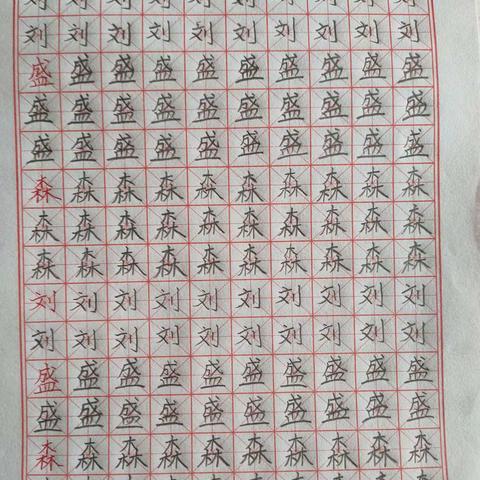 刘刘刘刘刘刘刘刘刘刘
刘刘刘刘刘刘刘刘刘刘
盛盛盛盛盛盛盛盛盛盛
盛盛盛盛盛盛盛盛盛盛
盛盛盛盛盛盛盛盛盛盛
森森森森森森森森森森
森森森森森森森森森森
森森森森森森森森森森
刘刘刘刘刘刘刘刘刘刘
刘刘刘刘刘刘刘刘刘刘
盛盛盛盛盛盛盛盛盛盛
盛盛盛盛盛盛盛盛盛盛
森森森森森森森森森森